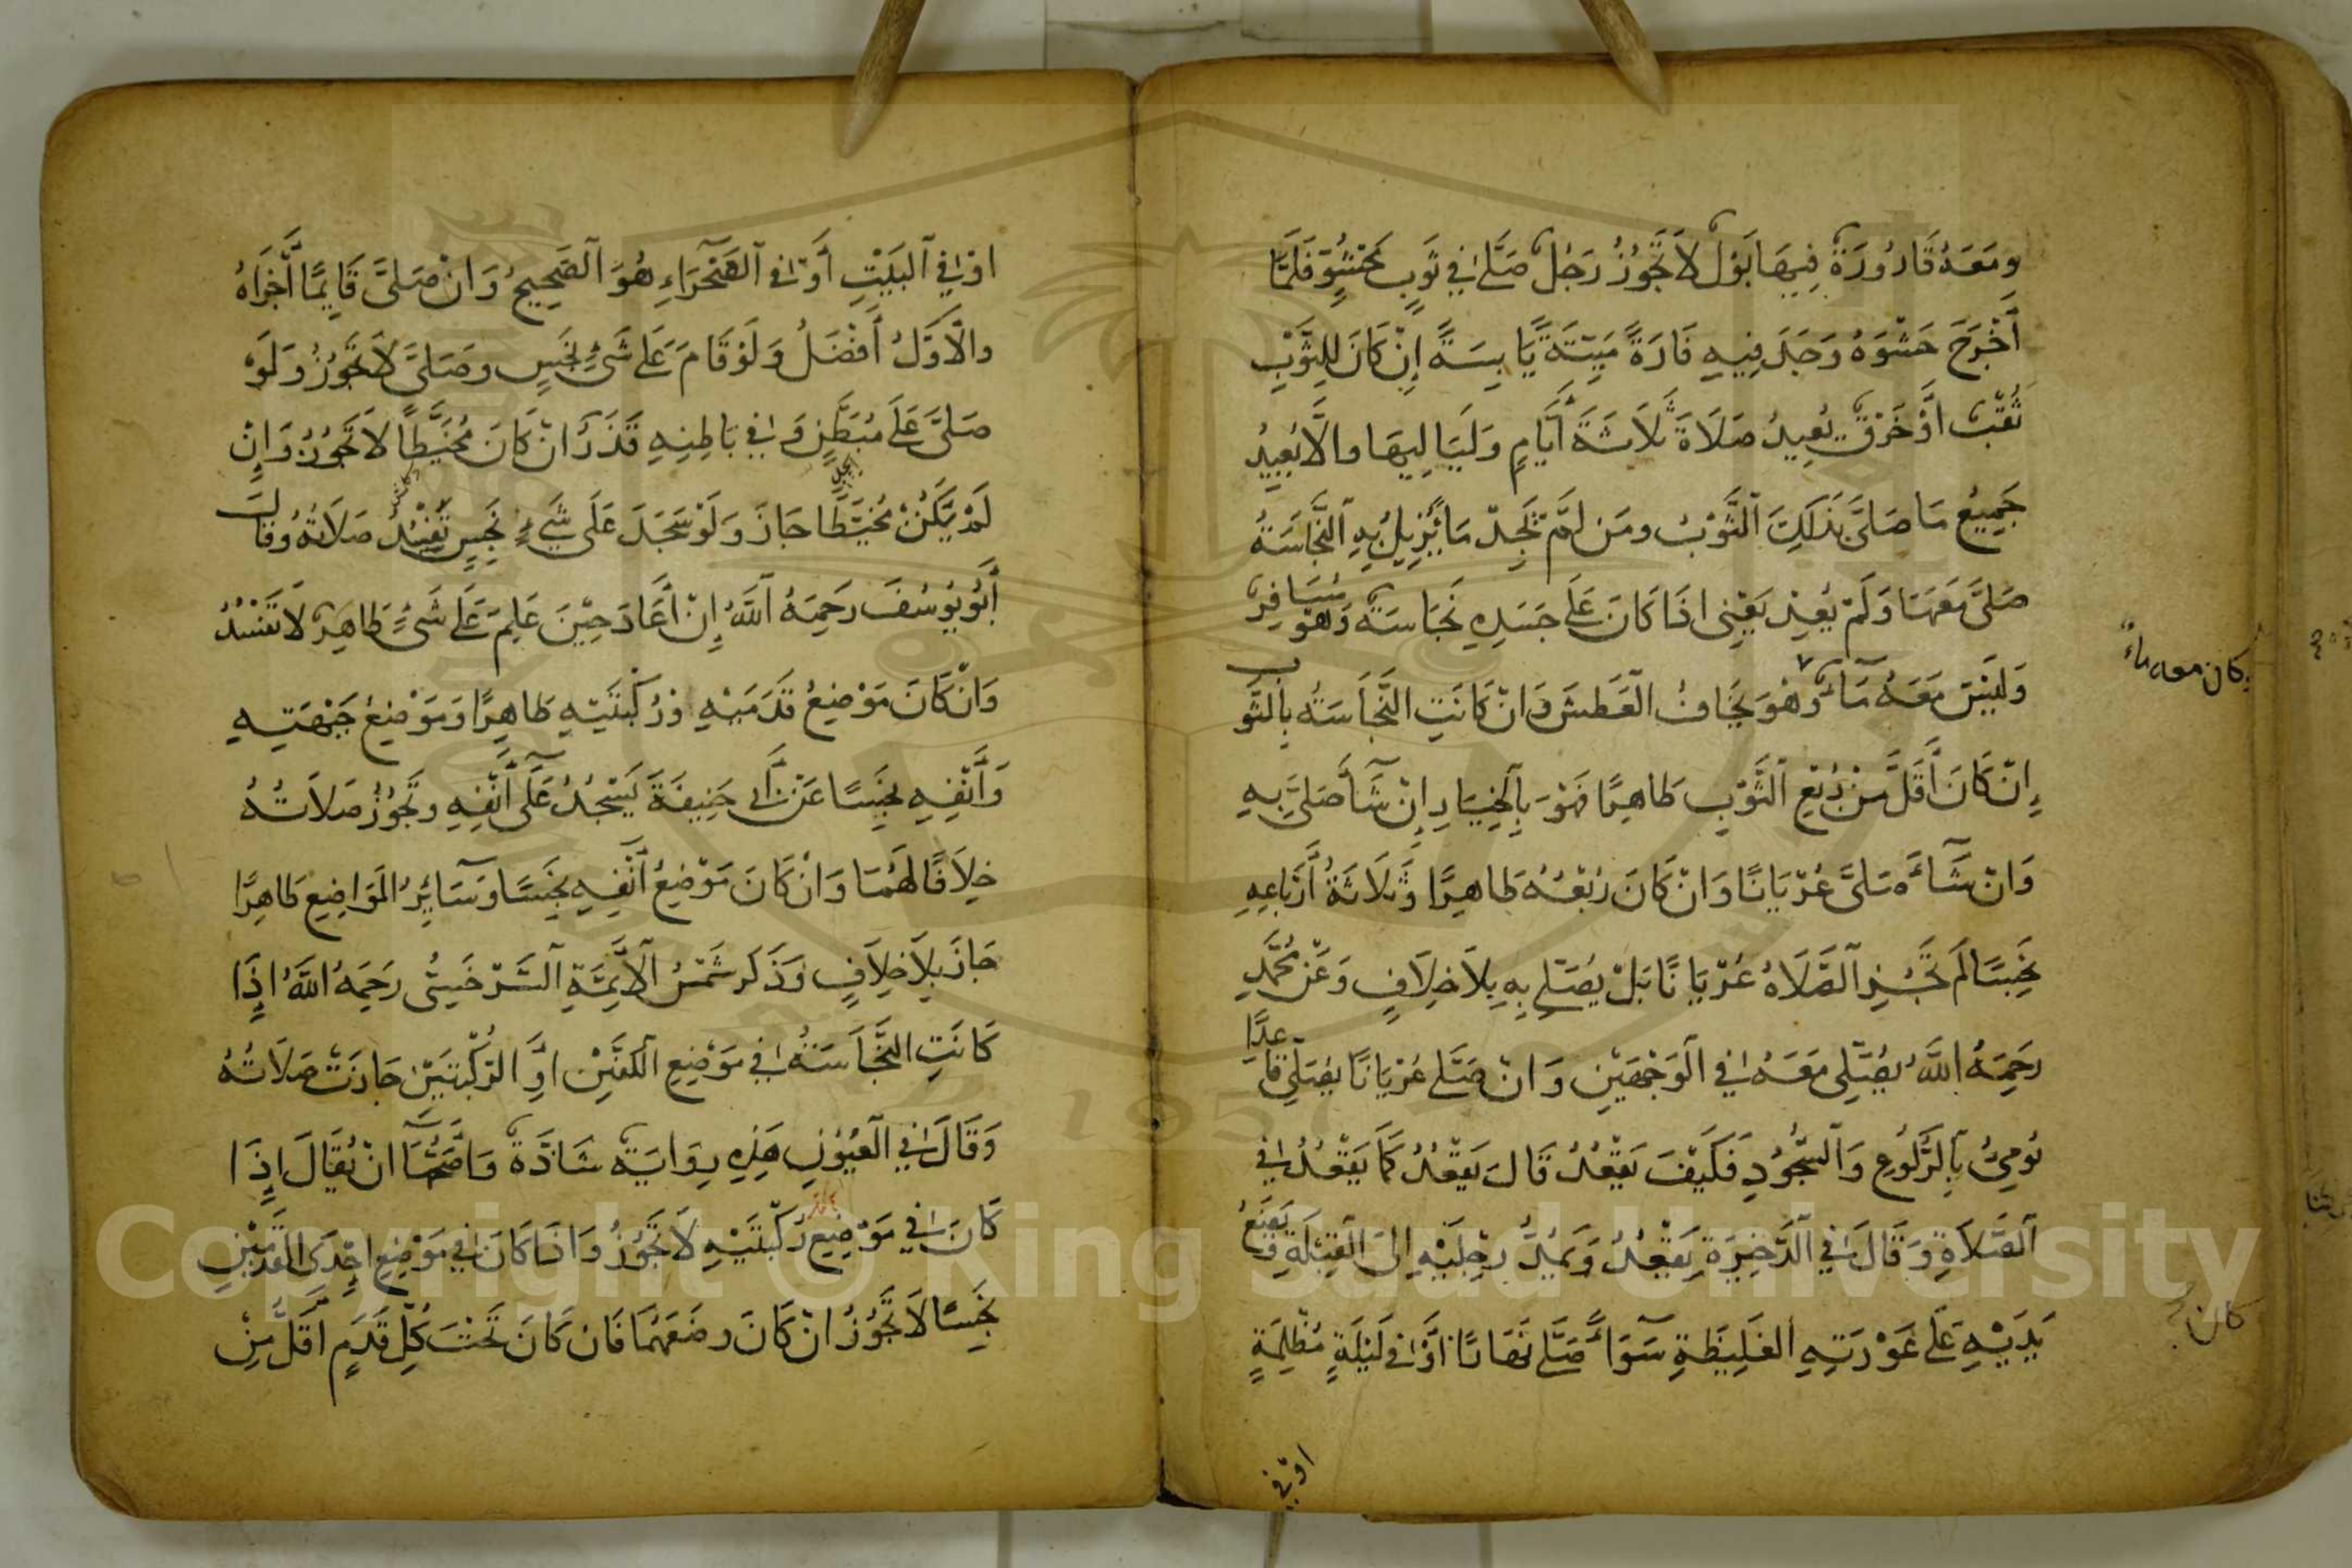 ومَعَهُ قَارُورَةٌ فِيهَا بَوْلٌ لَا تَجُوزُ رَجُلٌ صَلَّى فِي ثَوبٍ مَحْشُوٍّ فَلَمَّا
أَخْرَجَ حَشْوَهُ وَجَدَ فِيهِ فَارَةً مَيِّتَةً يَابِسَةً إِنْ كَانَ لِلثَّوْبِ
ثَقْبٌ أَوْ خَرْقٌ يُعِيدُ صَلَاةَ ثَلَاثَةَ أَيَّامٍ وَلَيَالِيهَا والَّا يُعِيدُ
جَمِيعُ مَا صَلَّى بِذَلِكَ الثَّوْبِ ومَن لَمْ يَجِدْ مَا يُزِيلُ بِهِ النَّجَاسَةُ
صَلَّى مَعَهَا وَلَمْ يُعِدْ يَعْنِى اذَا كَانَ عَلَى جَسَدِهِ نَجَاسَةٌ وَهُوَ مُسَافِرٌ
وَلَيْسَ مَعَهُ مَآءٌ وَهُوَ يَخَافُ الْعَطَشَ وَانْ كَانَتِ النَّجَاسَةُ بِالثَّوب
إِنْ كَانَ أَقَلَّ مِنْ رُبُعِ الثَّوْبِ طَاهِرًا فَهُوَ بِالْخِيَارِ إِنْ شَآءَ صَلَّى بِهِ
وَانْ شَآءَ صَلَّى عُرْيَانًا وَانْ كَانَ رُبْعُهُ طَاهِرًا وَثَلَاثَةُ أَرْبَاعِهِ
نَجِسًا لَم تَجُزِ الصَّلَاةُ عُرْيَانًا بَلْ يُصَلِّي بِهِ بِلَا خِلَافٍ وَعَنْ مُحَمَّدٍ
رَحِمَهُ اللَّهُ يُصَلِّى مَعَهُ فِي الْوَجْهَيْنِ وَانْ صَلَّى عُرْيَانًا يُصَلِّى قَاعِدًا
يُومِئُ بِالرُّكُوعِ وَالسُّجُودِ فَكَيْفَ يَقْعُدُ قَالَ يَقْعُدُ كَمَا يَقْعُدُ فِي
الصَّلَاةِ وَقَالَ فِي الذَّخِيرَةِ يَقْعُدُ وَيَمُدُّ رِجْلَيْهِ إِلَى الْقِبْلَةِ وَيَضَعُ
يَدَيْهِ عَلَى عَوْرَتِهِ الْغَلِيظَةِ سَوَآءٌ صَلَّى نَهَارًا أَوْ فِي لَيْلَةٍ مُظْلِمَةٍ
اوْ فِي
كان معه ماء
كان
اوْ فِي الْبَيْتِ أَوْ فِي الصَّحْرَآءِ هُوَ الصَّحِيحُ وَانْ صَلَّى قَايِمًا أَجْزَاهُ
والْاَوَّلُ أَفْضَلُ وَلَوْ قَامَ عَلَى شَىْءٍ نَجِسٍ وصَلَّى لَا تَجُوزُ وَلَوْ
صَلَّى عَلَى مُبَطَّنٍ وَفِي بَاطِنِهِ قَذَرٌ انْ كَانَ مُخَيَّطًا لَا تَجُوزُ وَإِنْ
لَمْ يَكُنْ مُخَيَّطًا جَازَ وَلَوْ سَجَدَ عَلَى شَيْءٍ نَجِسٍ تَفْسُدُ صَلَاتُهُ وَقَالَ
أَبُو يُوسُفَ رَحِمَهُ اللَّهُ إِنْ أَعَادَ حِيْنَ عَلِمَ عَلَى شَىْءٍ طَاهِرٍ لَا تَفْسُدُ
وَانْ كَانَ مَوْضِعُ قَدَمَيْهِ وَرُكْبَتَيْهِ طَاهِرًا وَمَوْضِعُ جَبْهَتِهِ
وَأَنْفِهِ نَجِسًا عَنْ أَبِي حَنِيفَةَ يَسْجُدُ عَلَى أَنْفِهِ وتَجُوزُ صَلَاتُهُ
خِلَافًا لَهُمَا وَانْ كَانَ مَوْضِعُ أَنْفِهِ نَجِسًا وَسَآئِرُ الْمَوَاضِعِ طَاهِرًا
جَازَ بِلَا خِلَافٍ وَذَكَرَ شَمْسُ الْاَئِمَّةِ السَّرْخَسِيُّ رَحِمَهُ اللَّهُ اذَا
كَانَتِ النَّجَاسَةُ فِي مَوْضِعِ الْكَفَّيْنِ اوِ الرُّكْبَتَيْنِ جَازَتْ صَلَاتُهُ
وَقَالَ فِي الْعُيُونِ هَذِهِ رِوَايَةٌ شَاذَّةٌ وَاصَحُّهَا انْ يُقَالَ اذَا
كَانَ فِي مَوْضِعِ رُكْبَتَيْهِ لَا تَجُوزُ وَاذَا كَانَ فِي مَوْضِعِ احْدَى الْقَدَمَيْنِ
نَجِسًا لَا تَجُوزُ انْ كَانَ وضَعَهُمَا فَان كَانَ تَحْتَ كُلِّ قَدَمٍ أَقَلَّ مِنْ
Copyright © King Saud University
1957